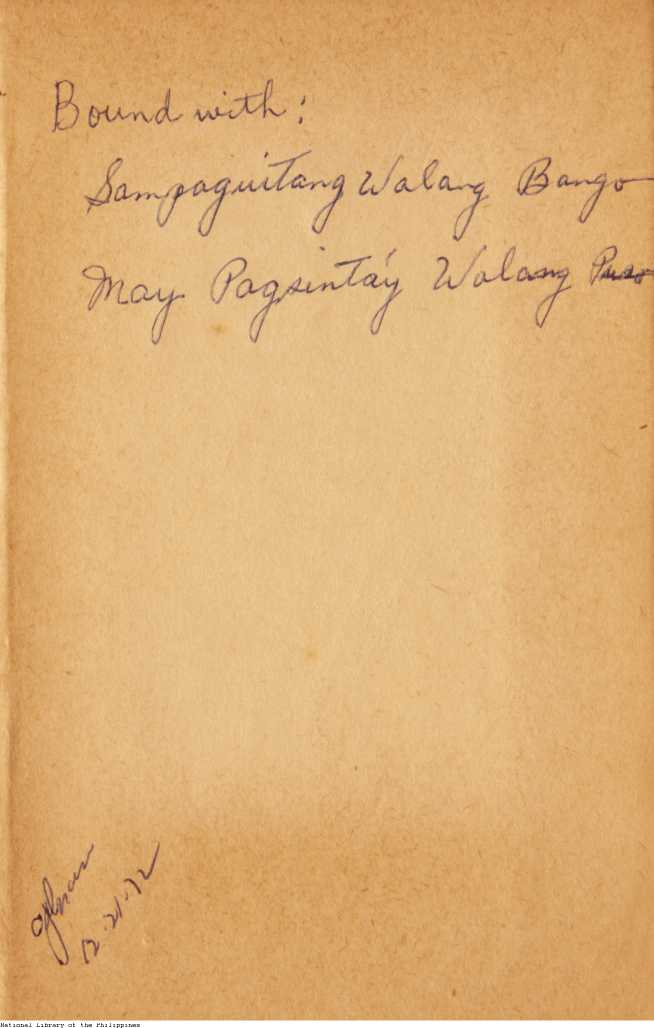 Bound with:
Sampaguitang Walang Bango
May Pagsintáy Walang Puso
12-21-72
National Library of the Philippines